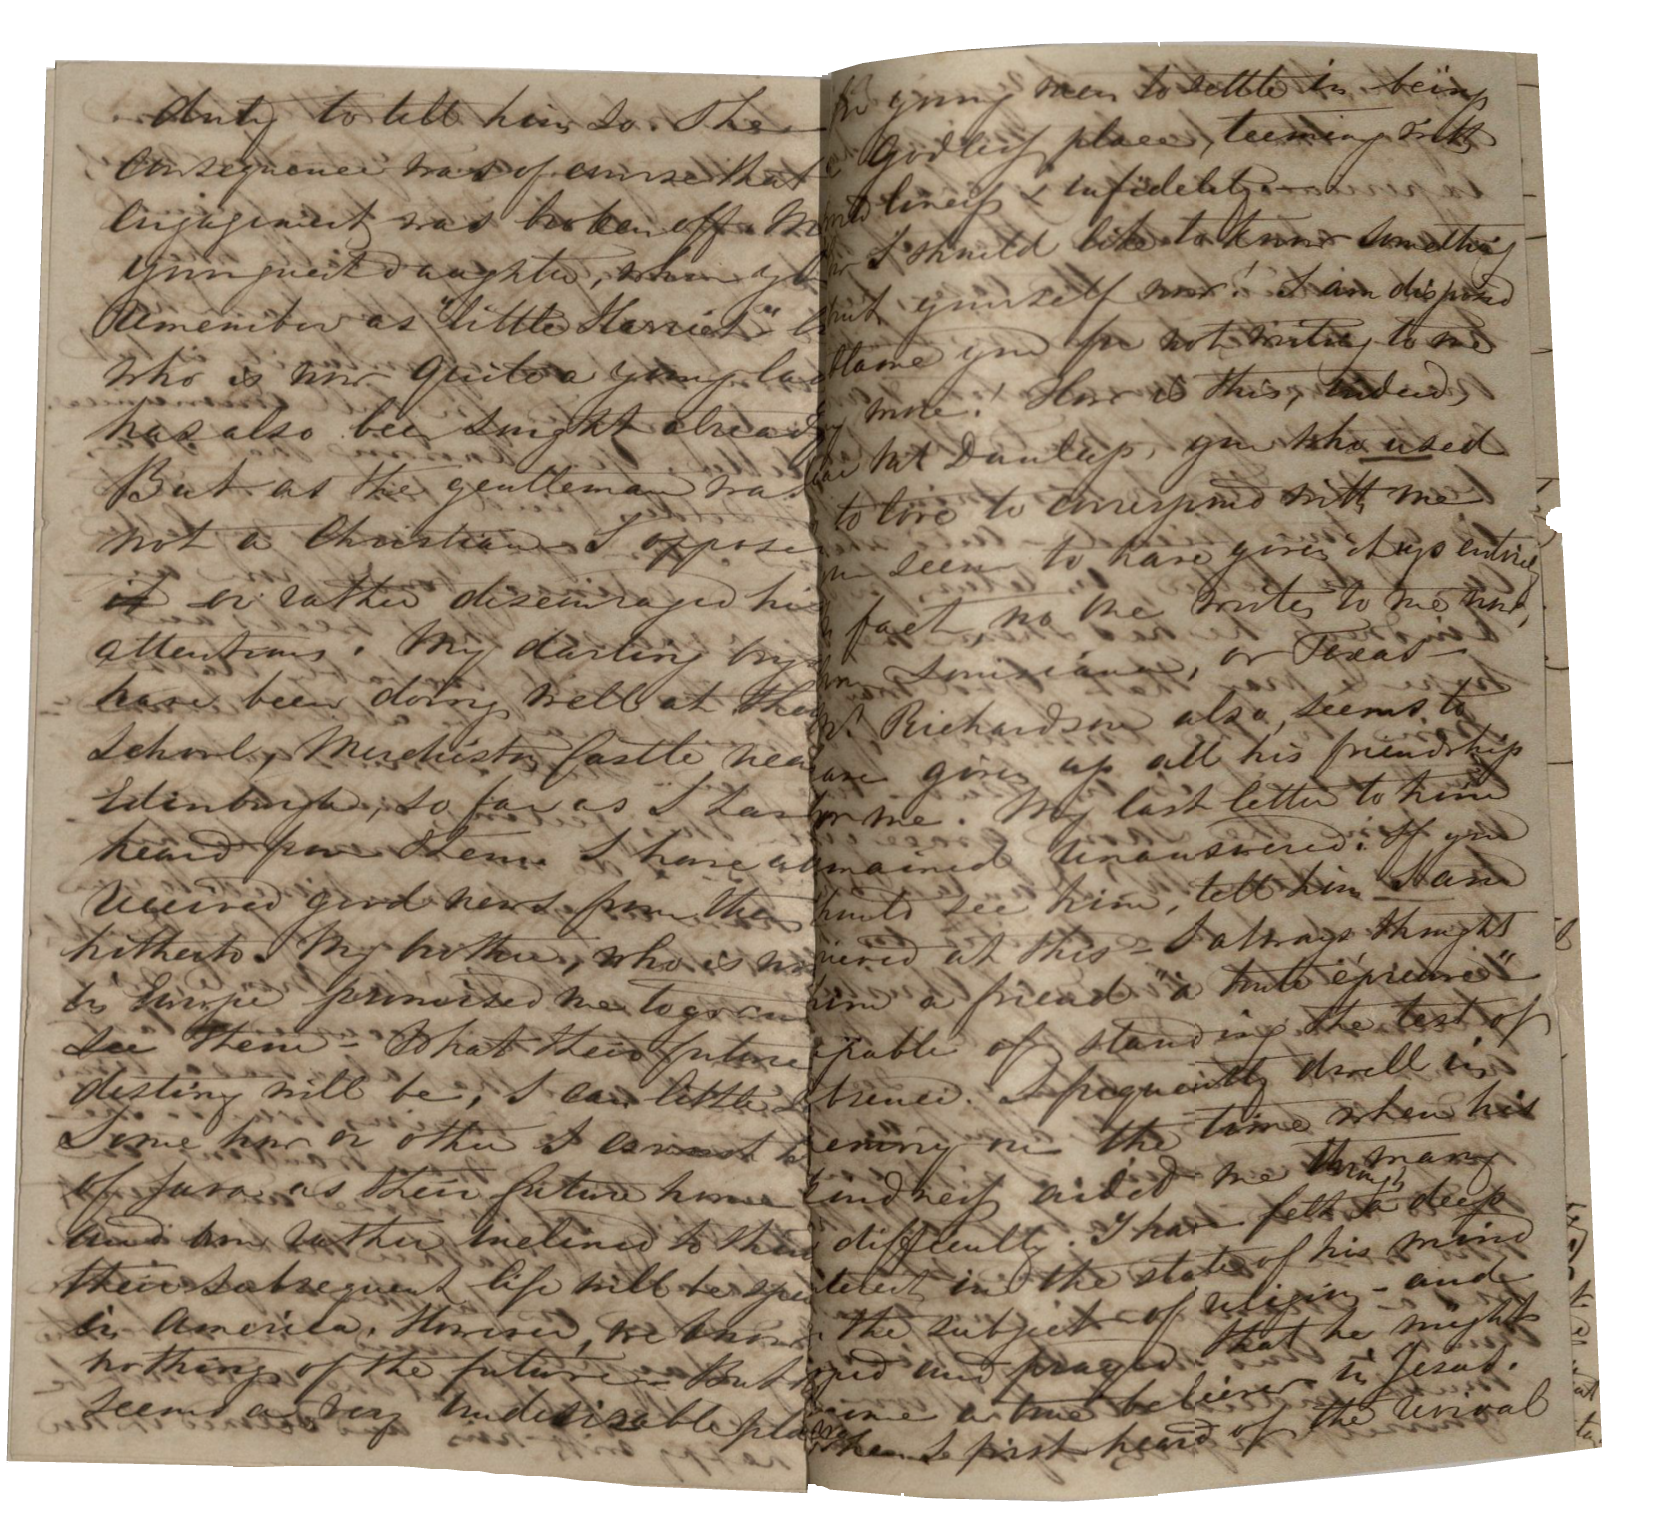 duty to tell him so. The
consequence was of course that
engagement was broken off. My
youngest daughter, whom you
remember as "little Harriet"
who is now quite a young lady
has also been sought already
But as the gentleman was
not a Christian I opposed
it or rather discouraged his
attentions. My darling boys
have been doing well at their
school, Merchiston Castle near
Edinburgh, so far as I have
heard from them. I have
received good news from them
hitherto. My brother, who is now
in Europe promised me to go and
see them - What their future
destiny will be, I can little
Some how or other I cannot
of Java as their future home
and am rather inclined to think
their subsequent life will be spent
in America. However, we know
nothing of the future - But
seems a very undesirable place
for young men to settle in - being
a Godless place, teeming with
worldliness & infidelity -
Now I should like to know something
about yourself now! I am disposed
blame you for not writing to me
any more. How is this, indeed,
dear Mat Dunlap, you who used
to love to correspond with me
you seem to have given it up entirely
In fact, no one writes to me now,
from Louisiana, or Texas -
Dr. Richardson also, seems to
have given up all his friendship
for me. My last letter to him
remained unanswered. If you
should see him, tell him I am
grieved at this - I always thought
him a friend "a toute épreuve"
capable of standing the test of
absence. I frequently dwell in
memory on the time when his
kindness aided me through many
a difficulty. I have felt a deep
interest in the state of his mind
on the subject of religion - and
hoped and prayed that he might
become a true believer in Jesus.
When I first heard of the revival